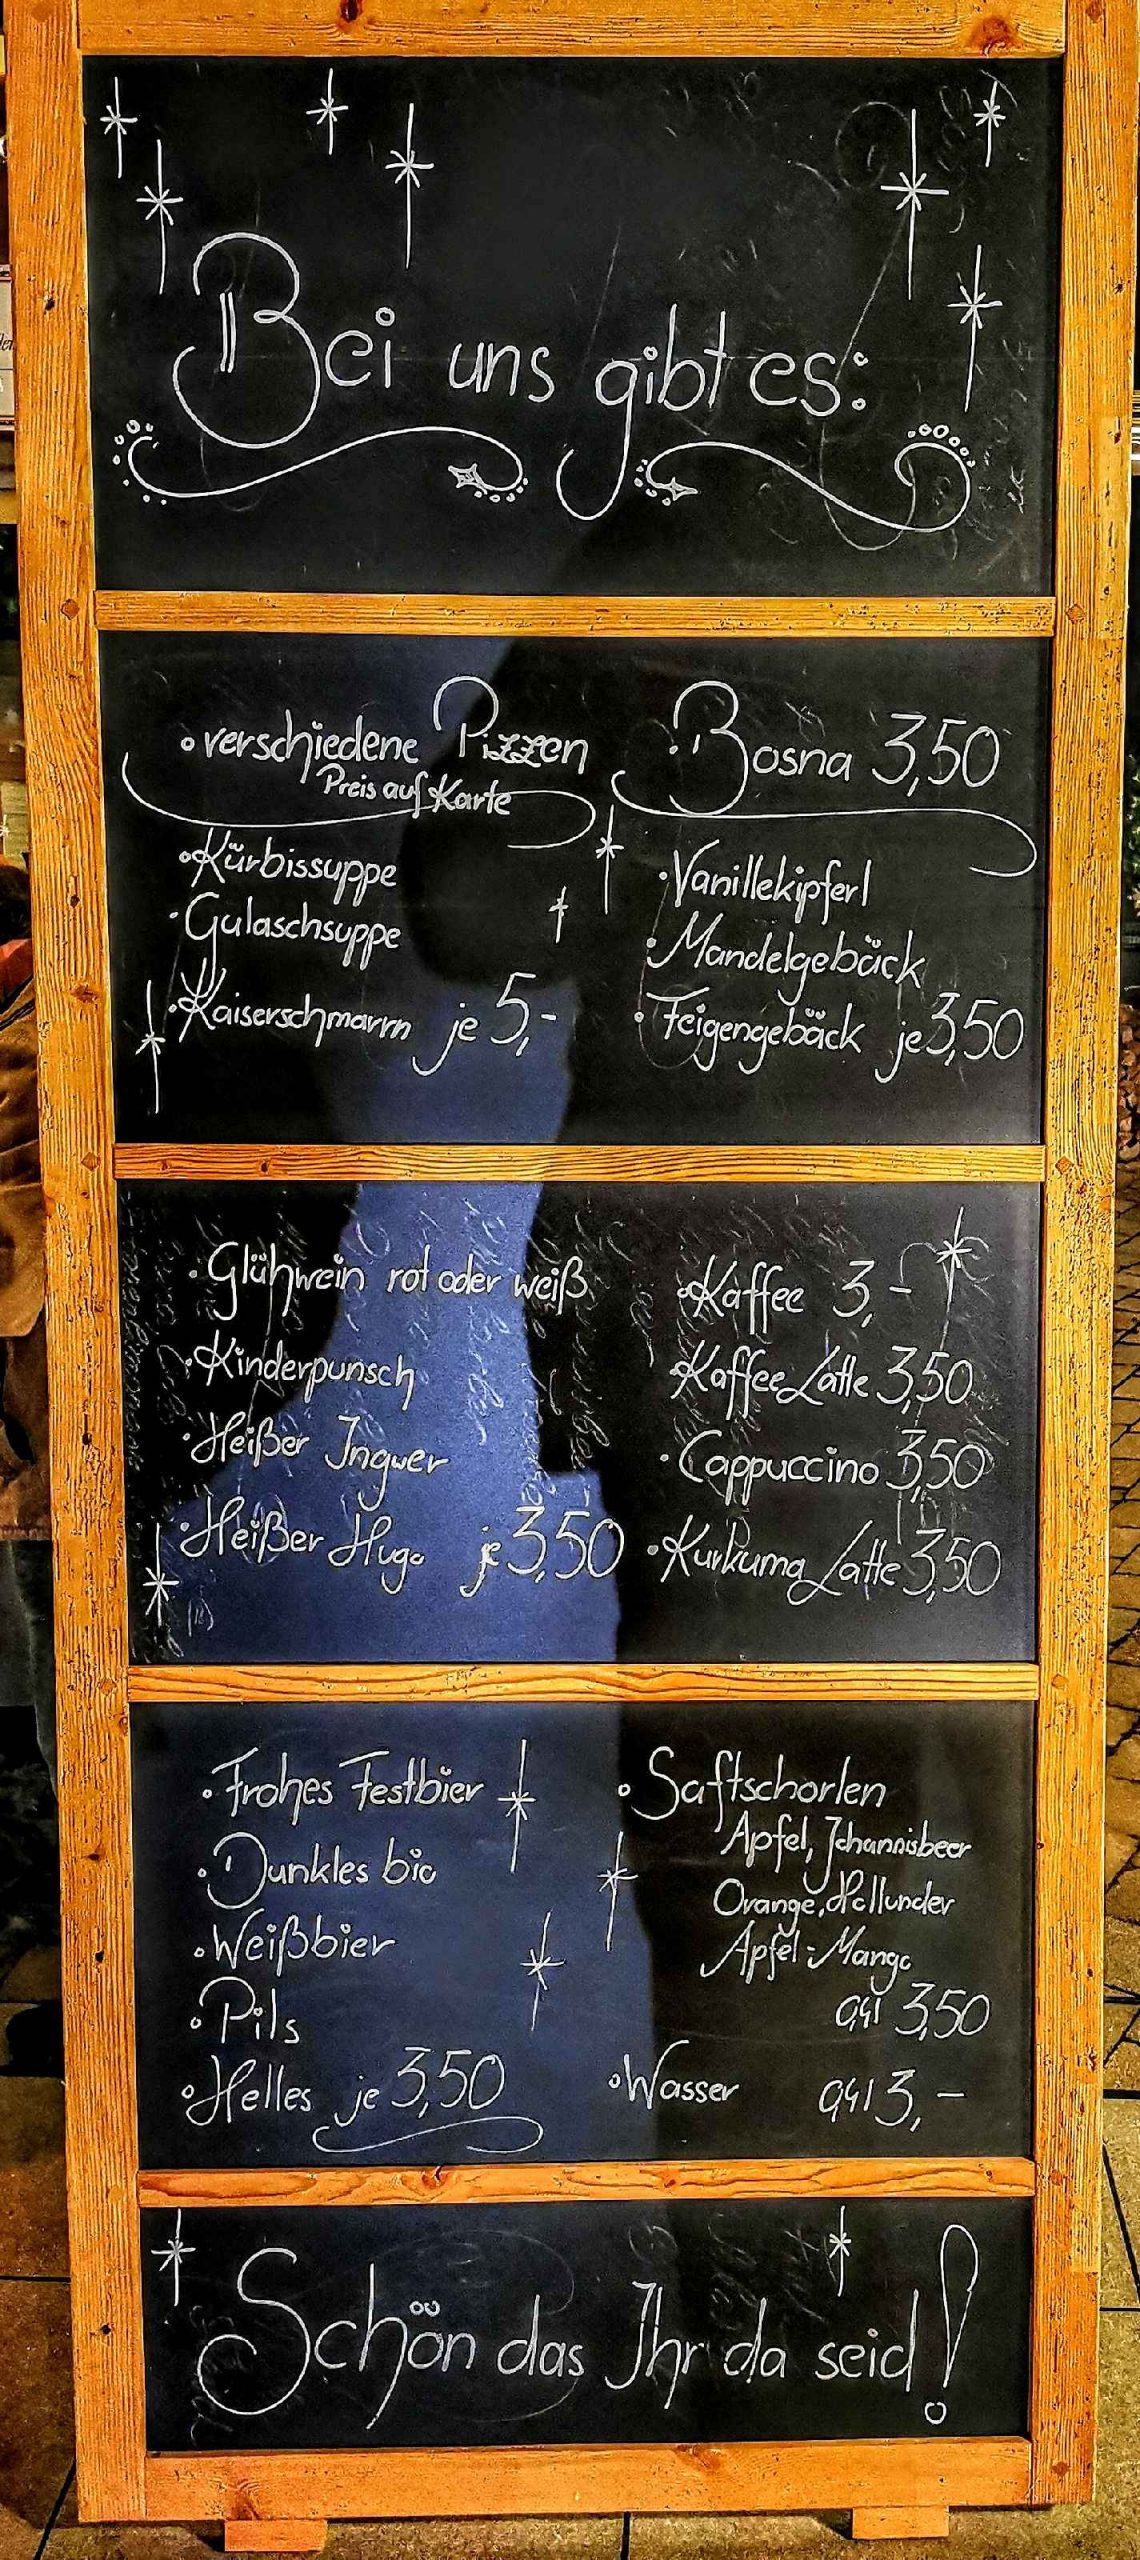 Bei uns gibt es:
• verschiedene Pizzen
Preis auf Karte
• Kürbissuppe
• Gulaschsuppe
• Kaiserschmarrn je 5,-
• Bosna 3,50
• Vanillekipferl
• Mandelgebäck
• Feigengebäck je 3,50
• Glühwein rot oder weiß
• Kinderpunsch
• Heißer Ingwer
• Heißer Hugo je 3,50
• Kaffee 3,-
• Kaffee Latte 3,50
• Cappuccino 3,50
• Kurkuma Latte 3,50
• Frohes Festbier
• Dunkles bio
• Weißbier
• Pils
• Helles je 3,50
• Saftschorlen
Apfel, Johannisbeer
Orange, Hollunder
Apfel-Mango
0,4l 3,50
• Wasser 0,4l 3,-
Schön das Ihr da seid!